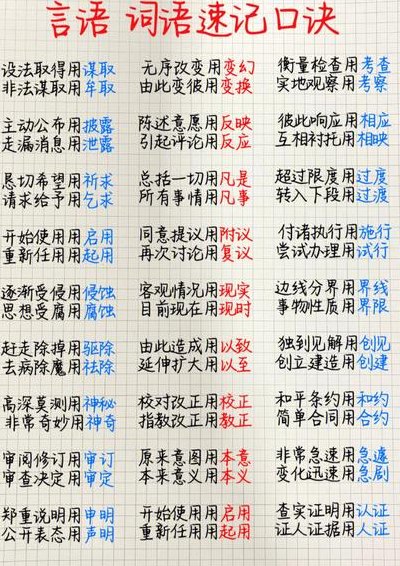 言语 词语速记口诀
设法取得用谋取
非法谋取用牟取
无序改变用变幻
由此变彼用变换
衡量检查用考查
实地观察用考察
主动公布用披露
走漏消息用泄露
陈述意愿用反映
引起评论用反应
彼此响应用相应
互相衬托用相映
恳切希望用祈求
请求给予用乞求
总括一切用凡是
所有事情用凡事
超过限度用过度
转入下段用过渡
开始使用用启用
重新任用用起用
同意提议用附议
再次讨论用复议
付诸执行用施行
尝试办理用试行
逐渐受侵用侵蚀
思想受腐用腐蚀
客观情况用现实
目前现在用现时
边线分界用界线
事物性质用界限
赶走除掉用驱除
去病除魔用祛除
由此造成用以致
延伸扩大用以至
独到见解用创见
创立建造用创建
高深莫测用神秘
非常奇妙用神奇
校对改正用校正
指教改正用教正
和平条约用和约
简单合同用合约
审阅修订用审订
审查决定用审定
原来意图用本意
本来意义用本义
非常急速用急遽
变化迅速用急剧
郑重说明用申明
公开表态用声明
开始使用用启用
重新任用用起用
查实证明用认证
证人证据用人证